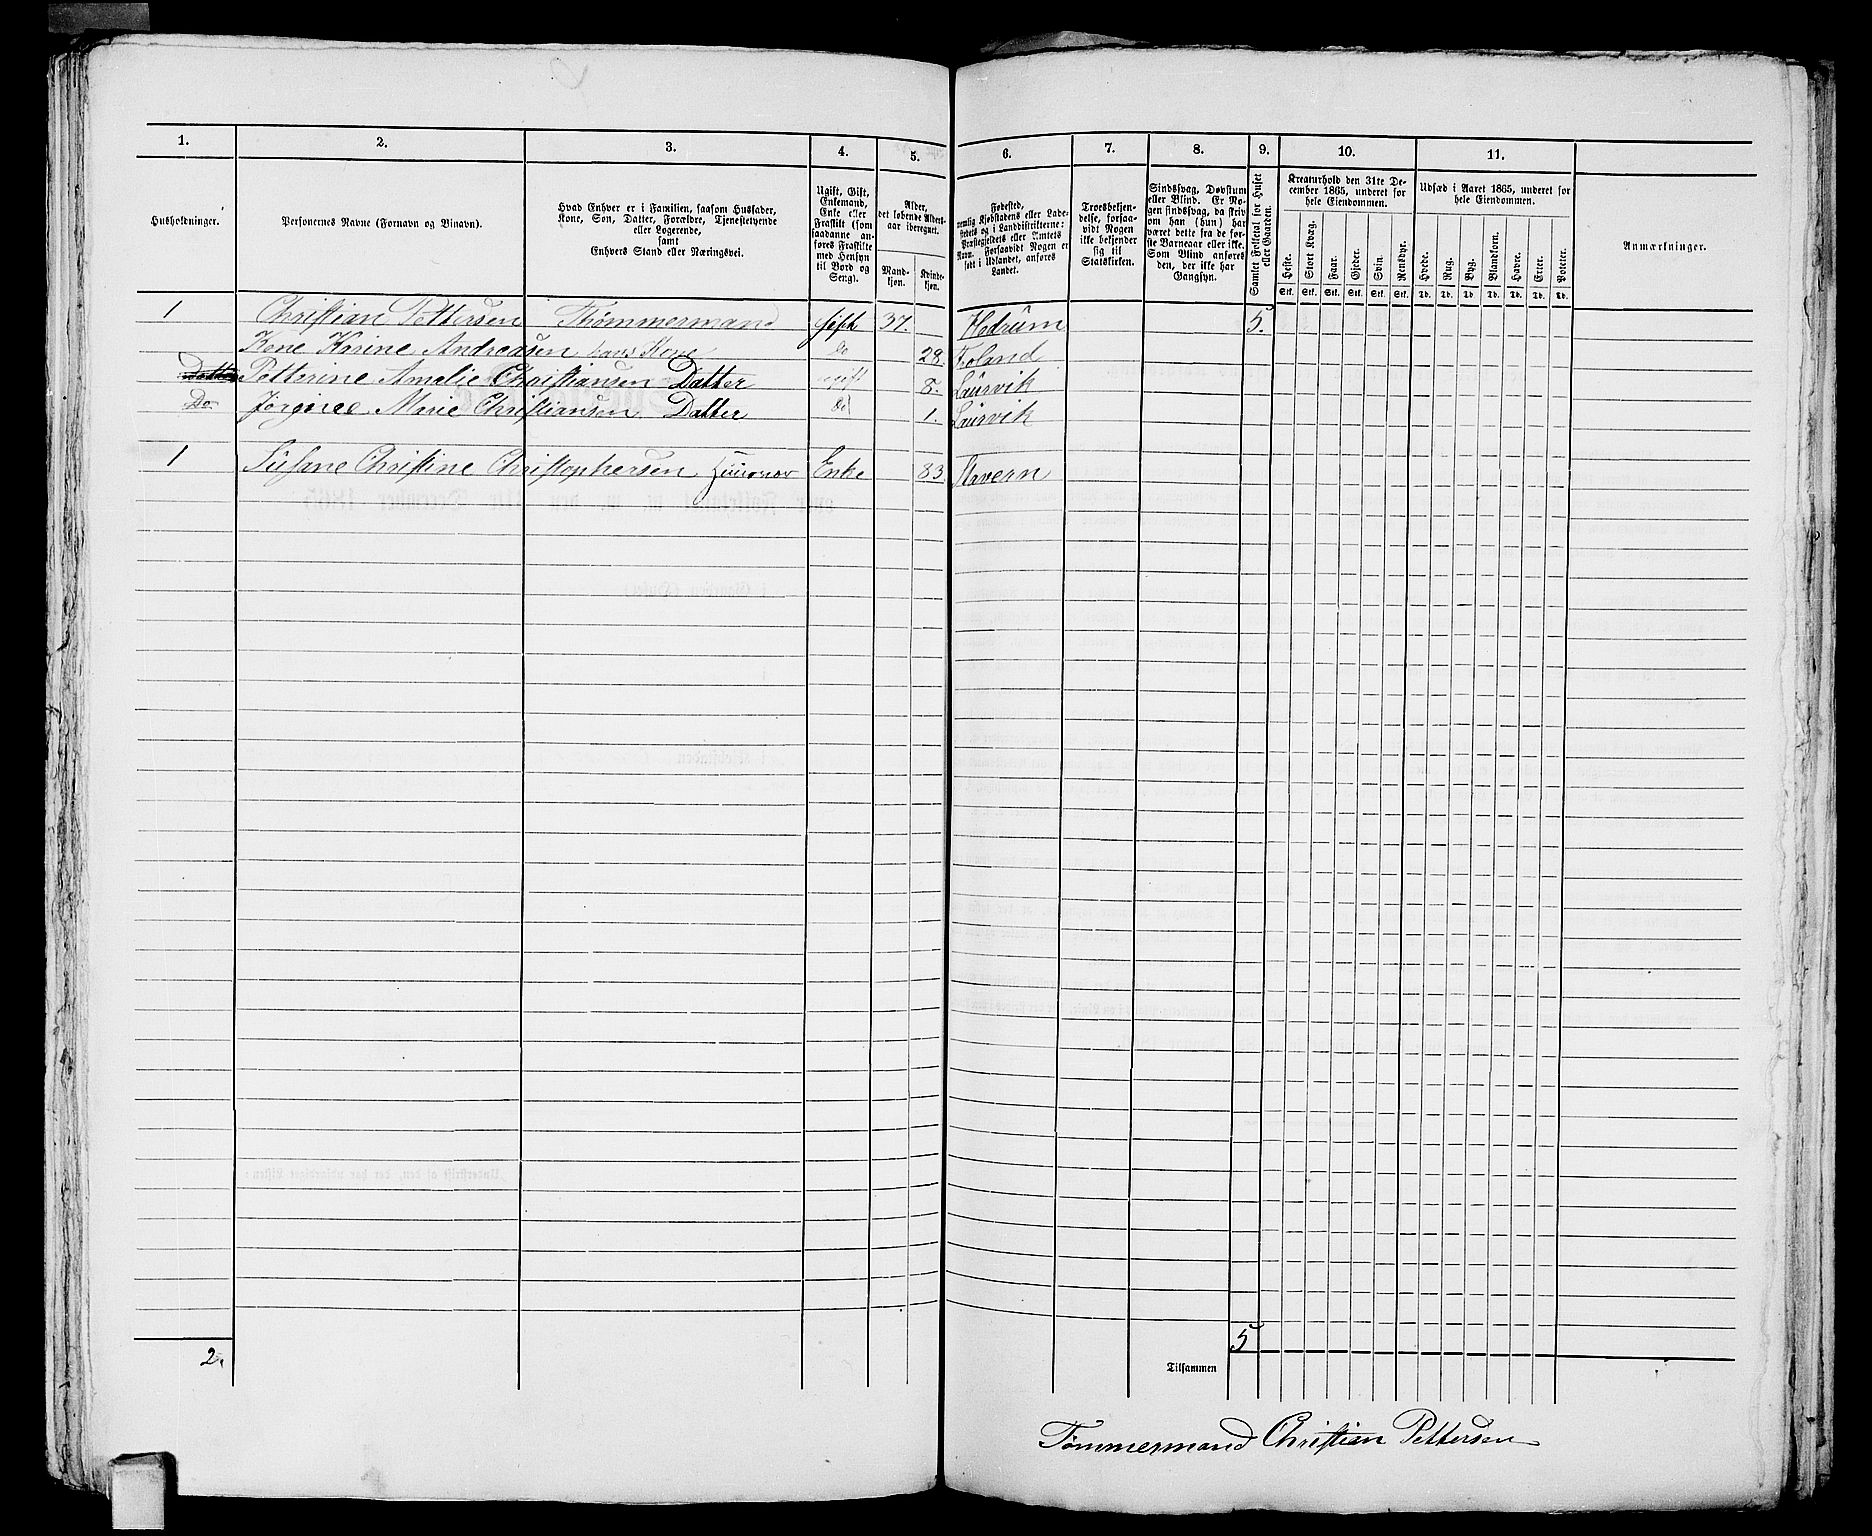 1. 2. 3. 4. 5. 6. 7. 8. 9. 10. 11.
Husholdninger.
Personernes Navne (Fornavn og Binavn).
Hvad Enhver er i Familien, saasom Husfader,
Kone, Søn, Datter, Forældre, Tjenestetyende
eller Logerende,
samt
Enhvers Stand eller Næringsvei.
Ugift, Gift,
Enkemand,
Enke eller
Fraskilt (som
saadanne an-
føres Fraskilte
med Hensyn
til Bord og
Seng).
Alder,
det løbende Alders-
aar iberegnet.
Mand-
kjøn.
Kvinde-
kjøn.
Fødested,
nemlig Kjøbstadens eller Lade-
stedets og i Landdistrikterne:
Præstegjeldets eller Amtets
Navn. Forsaavidt Nogen er
født i Udlandet, anføres
Landet.
Troesbekjen-
delse, forsaa-
vidt Nogen
ikke bekjender
sig til
Statskirken.
Sindssvag, Døvstum
eller Blind. Er No-
gen sindssvag, da skriv
om han (hun) har
været dette fra de før-
ste Barneaar eller ikke.
Som Blind anføres
den, der ikke har
Gangsyn.
Samlet Folketal for Huset
eller Gaarden.
Kreaturhold den 31te De-
cember 1865, underet for
hele Eiendommen.
Heste. Stort Kvæg. Faar. Gjeder. Svin. Rensdyr.
Stk. Stk. Stk. Stk. Stk. Stk.
Udsæd i Aaret 1865, underet for
hele Eiendommen.
Hvede. Rug. Byg. Blandkorn. Havre. Erter. Poteter.
Td. Td. Td. Td. Td. Td. Td.
Anmærkninger.
1 Christian Pettersen Thømmermand gift 37. Hedrum 5.
Kene Karine Andreasen hans Kone do 28. Foland
Datter Petterine Amalie Christiansen Datter ugift 8. Laurvik
Do Jørgine Marie Christiansen Datter do 1. Laurvik
1 Susane Christine Christophersen Enke 83. Stavern
2.
5
Tilsammen
Tømmermand Christian Pettersen